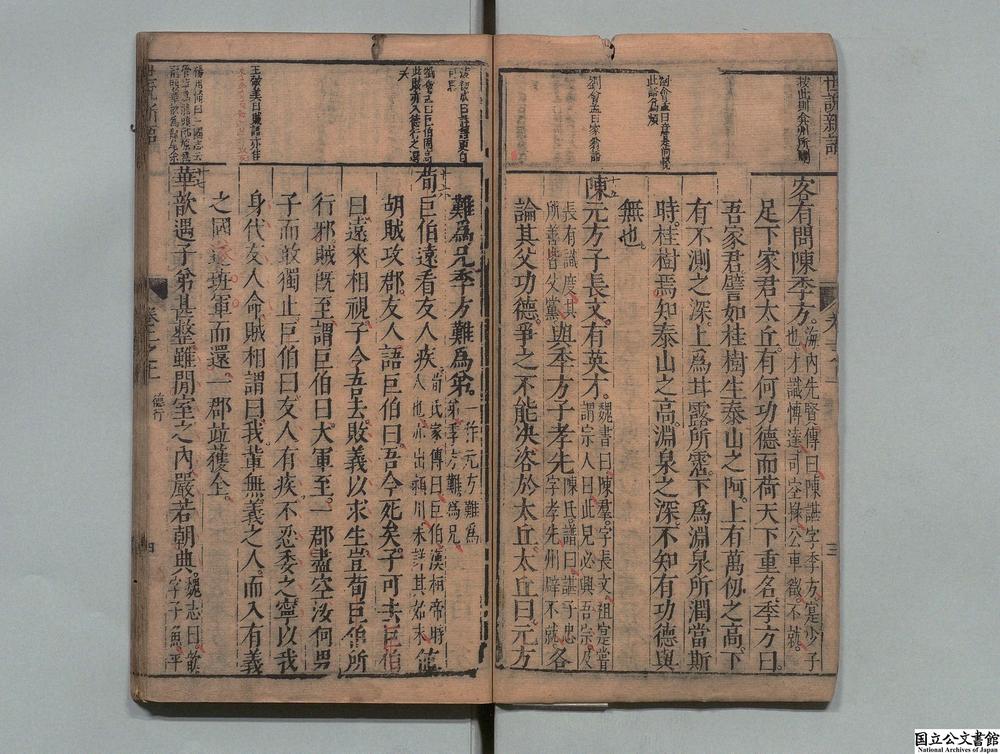 世說新語
客有問陳季方海内先賢傳曰陳諶字季方寔少子
也才識博達司空掾公車徵不就
足下家君太丘有何功德而荷天下重名季方曰
吾家君譬如桂樹生泰山之阿上有萬仞之高下
有不測之深上爲甘露所霑下爲淵泉所潤當斯
時桂樹焉知泰山之高淵泉之深不知有功德與
無也
劉會孟曰家翁語
十五
陳元方子長文有英才魏書曰陳羣字長文祖寔嘗
謂宗人曰此兒必興吾宗及
長有識度其
所善皆父黨
與季方子孝先陳氏譜曰諶子忠
字孝先州辟不就
各
論其父功德爭之不能決咨於太丘太丘曰元方
三
難爲兄季方難爲弟一作元方難爲
弟季方難爲兄
十六
荀巨伯遠看友人疾荀氏家傳曰巨伯漢桓帝時
人也亦出潁川未詳其始末
值
胡賊攻郡友人語巨伯曰吾今死矣子可去巨伯
曰遠來相視子令吾去敗義以求生豈荀巨伯所
行邪賊既至謂巨伯曰大軍至一郡盡空汝何男
子而敢獨止巨伯曰友人有疾不忍委之寧以我
身代友人命賊相謂曰我輩無義之人而入有義
之國遂班軍而還一郡竝獲全
十七
華歆遇子弟甚整雖閒室之内嚴若朝典魏志曰歆
字子魚平
世說新語
卷之上
德行
四
国立公文書館
National Archives of Japan